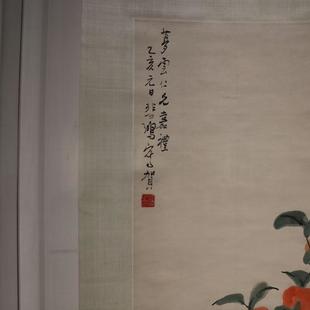 夢雲仁兄嘉禮
乙亥元日悲鴻寫賀